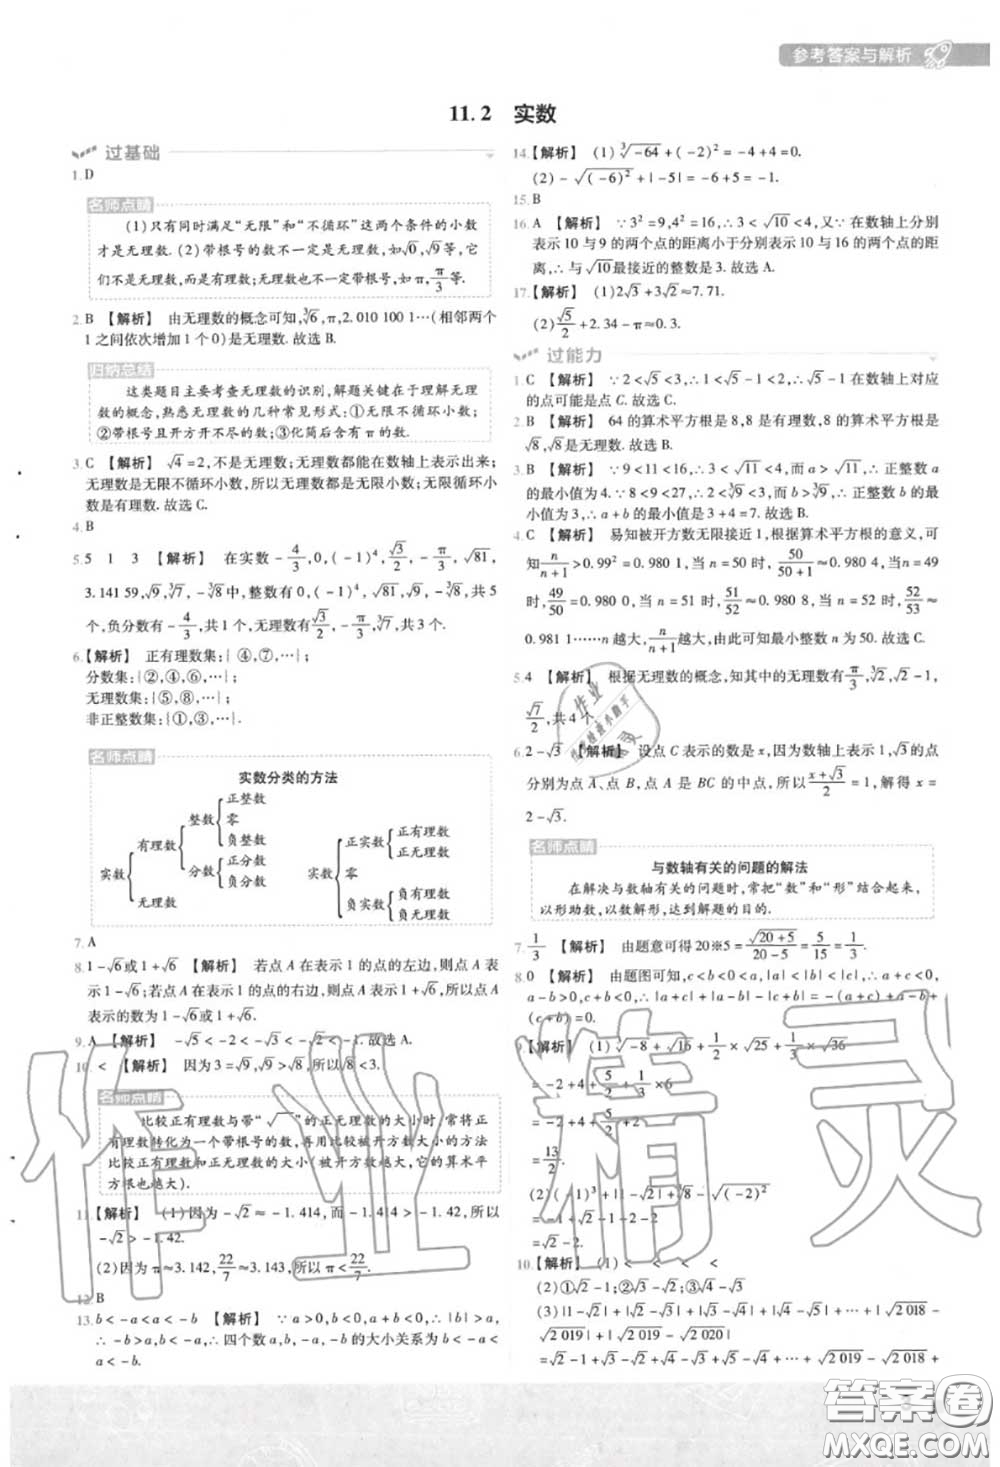 参考答案与解析
11.2 实数
过基础
1.D
名师点睛
(1)只有同时满足“无限”和“不循环”这两个条件的小数
才是无理数.(2)带根号的数不一定是无理数,如√0,√9等,它
们不是无理数,而是有理数;无理数也不一定带根号,如π,π/3等.
2.B 【解析】 由无理数的概念可知,∛6,π,2.010 100 1…(相邻两个
1之间依次增加1个0)是无理数.故选B.
归纳总结
这类题目主要考查无理数的识别,解题关键在于理解无理
数的概念,熟悉无理数的几种常见形式:①无限不循环小数;
②带根号且开方开不尽的数;③化简后含有π的数.
3.C 【解析】 √4=2,不是无理数;无理数都能在数轴上表示出来;
无理数是无限不循环小数,所以无理数都是无限小数;无限循环小
数是有理数.故选C.
4.B
5.5 1 3 【解析】 在实数-4/3,0,(-1)⁴,√3/2,-π/3,√81,
3.141 59,√9,∛7,-∛8中,整数有0,(-1)⁴,√81,√9,-∛8,共5
个,负分数有-4/3,共1个,无理数有√3/2,-π/3,∛7,共3个.
6.【解析】 正有理数集:{④,⑦,…};
分数集:{②,④,⑥,…};
无理数集:{⑤,⑧,…};
非正整数集:{①,③,…}.
名师点睛
实数分类的方法
实数 有理数 整数 正整数 零 负整数
分数 正分数 负分数
无理数
实数 正实数 正有理数 正无理数
零
负实数 负有理数 负无理数
7.A
8.1-√6或1+√6 【解析】 若点A在表示1的点的左边,则点A表
示1-√6;若点A在表示1的点的右边,则点A表示1+√6,所以点A
表示的数为1-√6或1+√6.
9.A 【解析】 -√5<-2<-√3<-√2.故选A.
10.< 【解析】 因为3=√9,√9>√8,所以√8<3.
名师点睛
比较正有理数与带“√”的正无理数的大小时,常将正
有理数转化为一个带根号的数,再用比较被开方数大小的方法
比较正有理数和正无理数的大小(被开方数越大,它的算术平
方根也越大).
11.【解析】 (1)因为-√2≈-1.414,而-1.414>-1.42,所以
-√2>-1.42.
(2)因为π≈3.142,22/7≈3.143,所以π<22/7.
12.B
13.b<-a<a<-b 【解析】 ∵a>0,b<0,a+b<0,∴|b|>a,
∴-b>a,b<-a,∴四个数a,b,-a,-b的大小关系为b<-a<
a<-b.
14.【解析】 (1)∛-64+(-2)²=-4+4=0.
(2)-√(-6)²+|-5|=-6+5=-1.
15.B
16.A 【解析】 ∵3²=9,4²=16,∴3<√10<4,又∵在数轴上分别
表示10与9的两个点的距离小于分别表示10与16的两个点的距
离,∴与√10最接近的整数是3.故选A.
17.【解析】 (1)2√3+3√2≈7.71.
(2)√5/2+2.34-π≈0.3.
过能力
1.C 【解析】 ∵2<√5<3,∴1<√5-1<2,∴√5-1在数轴上对应
的点可能是点C.故选C.
2.B 【解析】 64的算术平方根是8,8是有理数,8的算术平方根是
√8,√8是无理数.故选B.
3.B 【解析】 ∵9<11<16,∴3<√11<4,而a>√11,∴正整数a
的最小值为4.∵8<9<27,∴2<∛9<3,而b>∛9,∴正整数b的最
小值为3,∴a+b的最小值是3+4=7.故选B.
4.C 【解析】 易知被开方数无限接近1,根据算术平方根的意义,可
知n/(n+1)>0.99²=0.980 1,当n=50时,50/(50+1)≈0.980 4,当n=49
时,49/50=0.980 0,当n=51时,51/52≈0.980 8,当n=52时,52/53≈
0.981 1……n越大,n/(n+1)越大,由此可知最小整数n为50.故选C.
5.4 【解析】 根据无理数的概念,知其中的无理数有π/3,∛2,√2-1,
√7/2,共4个.
6.2-√3 【解析】 设点C表示的数是x,因为数轴上表示1,√3的点
分别为点A、点B,点A是BC的中点,所以(x+√3)/2=1,解得x=
2-√3.
名师点睛
与数轴有关的问题的解法
在解决与数轴有关的问题时,常把“数”和“形”结合起来,
以形助数,以数解形,达到解题的目的.
7.1/3 【解析】 由题意可得20※5=√(20+5)/(20-5)=5/15=1/3.
8.0 【解析】 由题图可知,c<b<0<a,|a|<|b|<|c|,∴a+c<0,
a-b>0,c+b<0,∴|a+c|+|a-b|-|c+b|=-(a+c)+a-b+
(c+b)=0.
9.【解析】 (1)∛-8+√16+1/2×√25+1/3×√36
=-2+4+5/2+1/3×6
=-2+4+5/2+2
=13/2.
(2)(-1)³+|1-√2|+∛8-√(-2)²
=-1+√2-1+2-2
=√2-2.
10.【解析】 (1)< < < <
(2)①√2-1;②√3-√2;③√4-√3
(3)|1-√2|+|√2-√3|+|√3-√4|+|√4-√5|+…+|√2 018-
√2 019|+|√2 019-√2 020|
=√2-1+√3-√2+√4-√3+√5-√4+…+√2 019-√2 018+
作业精灵
答案圈
MXQE.COM